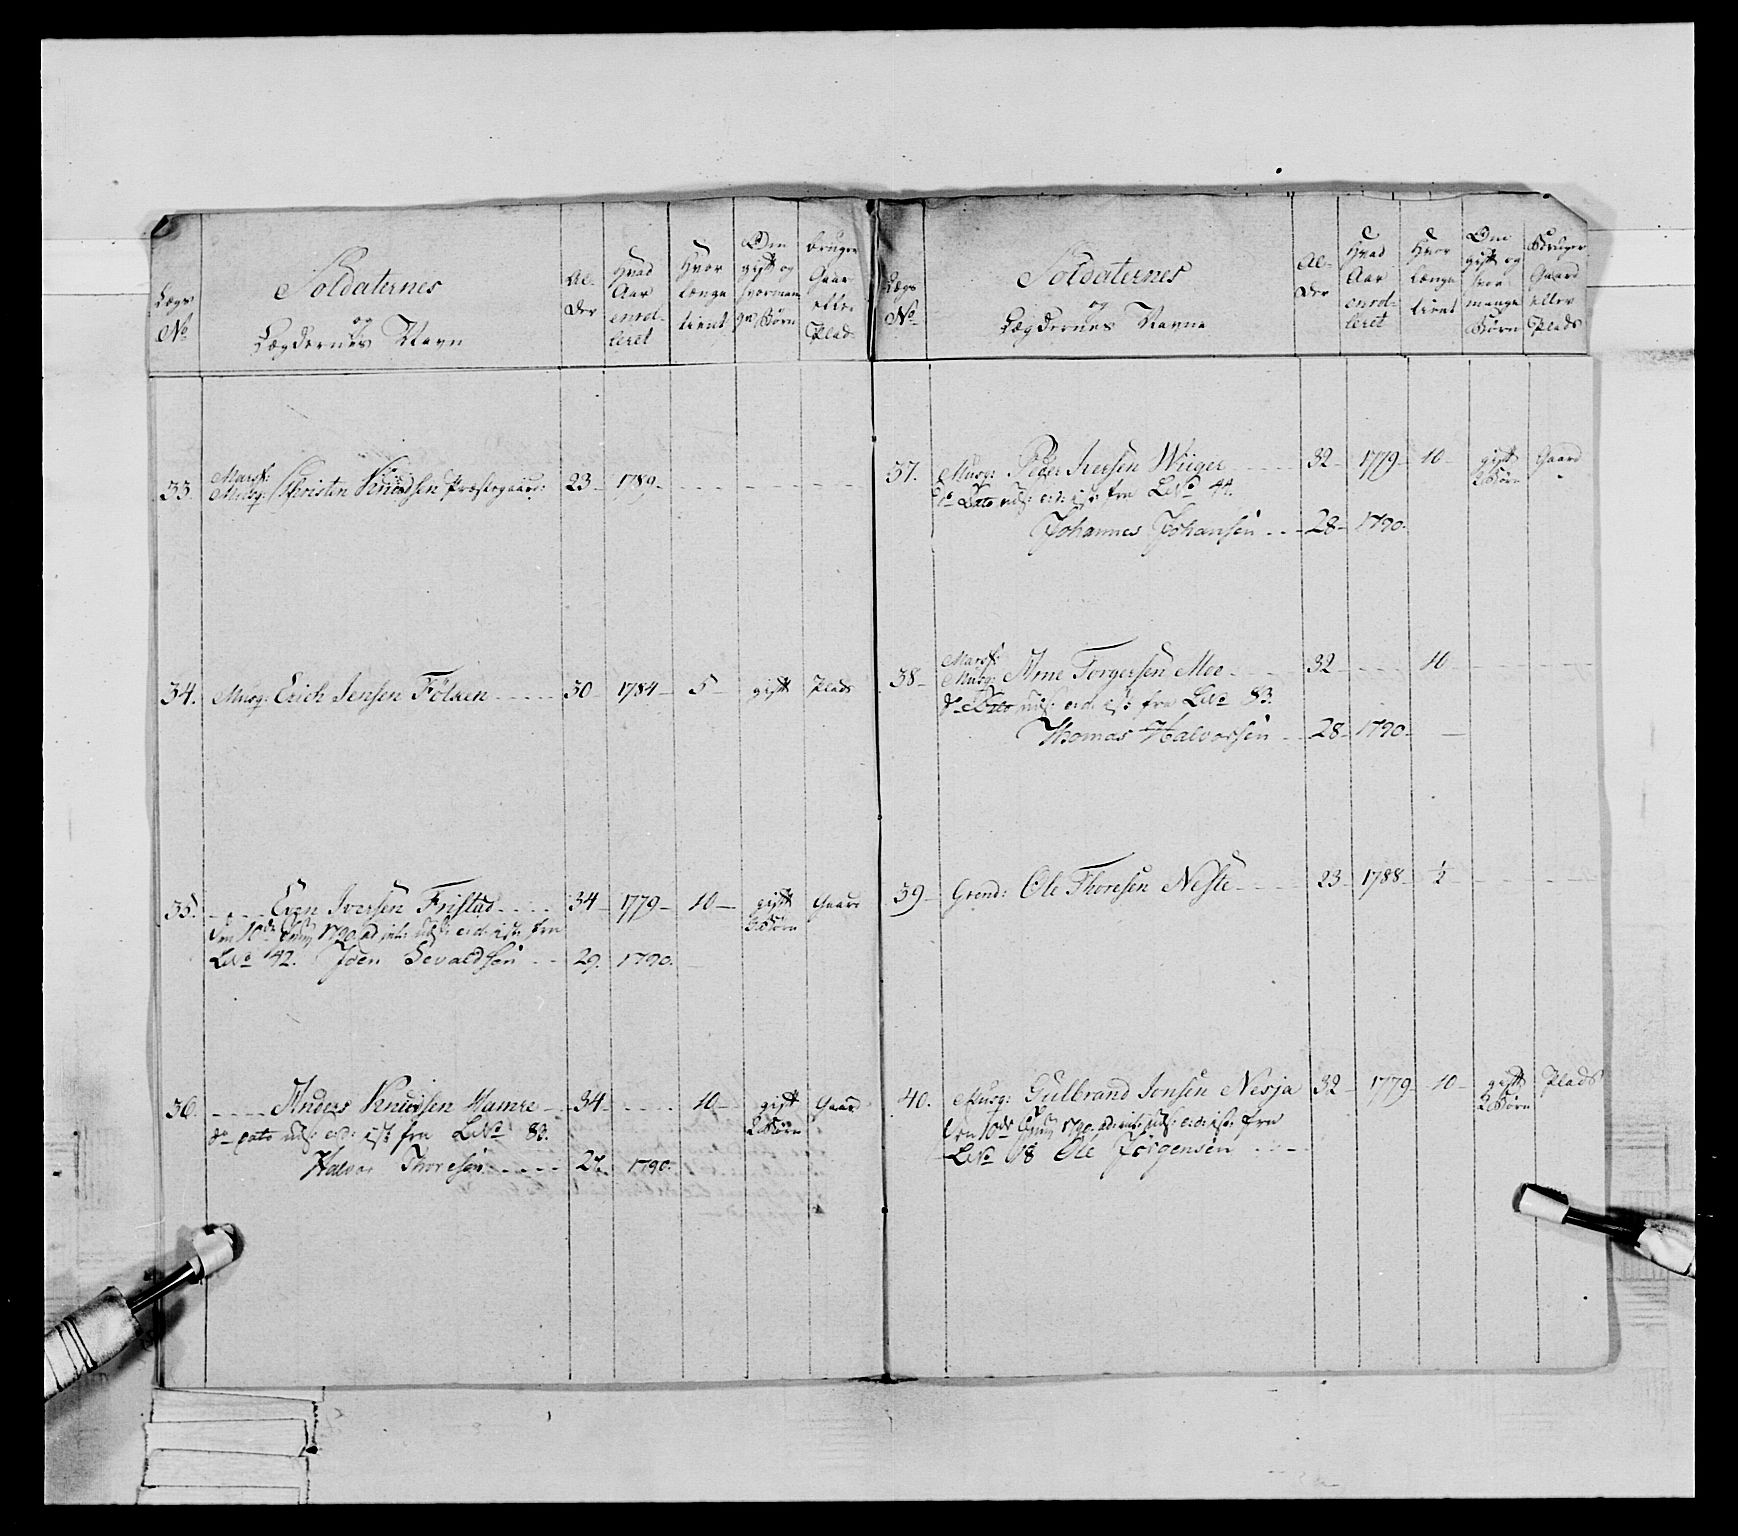 Lægs No
Soldaternes
og
Lægdernes Navn
Al-
der
Hvad
Aar
enrol-
leret
Hvor
længe
tient
Om
gift og
hvorman
ge Børn
bruger
Gaar
eller
Plads
33. Mousq: Christen Knudsen Præstegaard: 23 - 1789 -
34. Musq: Erich Jensen Fölsen 30 1784 - 5 - gift Plads
35. Even Iversen Fristad 34 - 1779 - 10 - gift Gaard
3 Børn
Den 10de Juny 1790 ad int: uds: fra
LNo 42. Joen Sevaldsen 29. 1790.
36. Anders Knudsen Hamre 34 - 10 - gift Gaard
2 Børn
do dato uds: fra LNo 83.
Halvor Thoresen 27. 1790.
Lægs
No
Soldaternes
og
Lægdernes Navne
Al-
der
Hvad
Aar
enrol-
leret
Hvor
længe
tient
Om
gift og
hvor
mange
Børn
Bruger
Gaard
eller
Plads
37. Musq: Peder Iversen Wiiger 32 - 1779 - 10 - gift Gaard
2 Børn
do Dato uds: fra LNo 44.
Johannes Johansen 28 - 1790.
38 - Musq: Arne Torgersen Moe 32 - 10
do Dato uds: fra LNo 83.
Thomas Halvorsen 28 - 1790 -
39 - Grend: Ole Thoresen Neste 23 - 1788 - ½
40. Musq: Gulbrand Jonsen Nesja 32 - 1779 - 10 - gift Plads
2 Børn
Den 10de Juny 1790. ad int: uds: fra
LNo 68 Ole Jörgensen